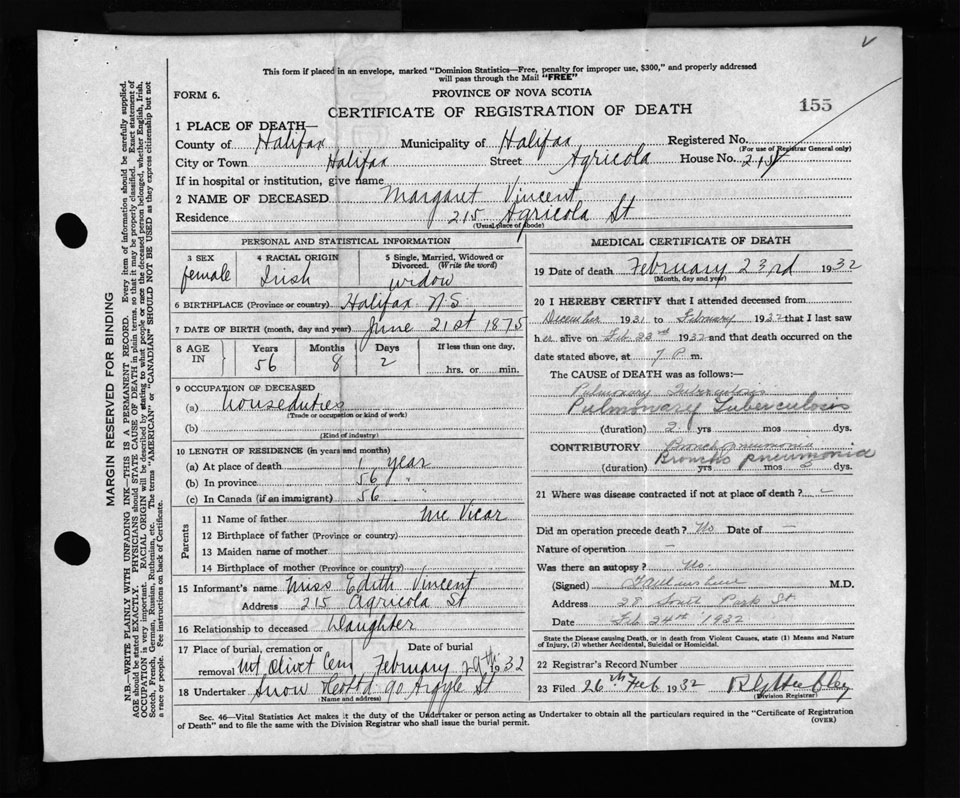 This form if placed in an envelope, marked "Dominion Statistics—Free, penalty for improper use, $300," and properly addressed
will pass through the Mail "FREE"
FORM 6.
PROVINCE OF NOVA SCOTIA
CERTIFICATE OF REGISTRATION OF DEATH
155
1 PLACE OF DEATH—
County of Halifax Municipality of Halifax Registered No.
(For use of Registrar General only)
City or Town Halifax Street Agricola House No. 215
If in hospital or institution, give name
2 NAME OF DECEASED Margaret Vincent
Residence 215 Agricola St
(Usual place of abode)
PERSONAL AND STATISTICAL INFORMATION
3 SEX 4 RACIAL ORIGIN 5 Single, Married, Widowed or
Divorced. (Write the word)
female Irish widow
6 BIRTHPLACE (Province or country) Halifax N.S
7 DATE OF BIRTH (month, day and year) June 21st 1875
8 AGE IN Years Months Days If less than one day,
56 8 2 hrs. or min.
9 OCCUPATION OF DECEASED
(a) houseduties
(Trade or occupation or kind of work)
(b)
(Kind of industry)
10 LENGTH OF RESIDENCE (in years and months)
(a) At place of death year
(b) In province 56 "
(c) In Canada (if an immigrant) 56 "
Parents
11 Name of father Mc Vicar
12 Birthplace of father (Province or country)
13 Maiden name of mother
14 Birthplace of mother (Province or country)
15 Informant's name Miss Edith Vincent
Address 215 Agricola St
16 Relationship to deceased Daughter
17 Place of burial, cremation or Date of burial
removal Mt Olivet Cem February 1932
18 Undertaker Snow 90 Argyle St
(Name and address)
MEDICAL CERTIFICATE OF DEATH
19 Date of death February 23rd 1932
(Month, day and year)
20 I HEREBY CERTIFY that I attended deceased from
December 1931 to February 1932 that I last saw
her alive on Feb 23rd 1932 and that death occurred on the
date stated above, at 7 P. m.
The CAUSE of DEATH was as follows:—
Pulmonary Tuberculosis
Pulmonary Tuberculosis
(duration) 2 yrs mos dys.
CONTRIBUTORY Broncho pneumonia
Broncho pneumonia
(duration) yrs mos dys.
21 Where was disease contracted if not at place of death? –
Did an operation precede death? No Date of —
Nature of operation —
Was there an autopsy? No.
(Signed) M.D.
Address 28 South Park St
Date Feb 24th 1932
State the Disease causing Death, or in death from Violent Causes, state (1) Means and Nature
of Injury, (2) whether Accidental, Suicidal or Homicidal.
22 Registrar's Record Number
23 Filed 26th Feb 1932
(Division Registrar)
Sec. 46—Vital Statistics Act makes it the duty of the Undertaker or person acting as Undertaker to obtain all the particulars required in the "Certificate of Registration
of Death" and to file the same with the Division Registrar who shall issue the burial permit. (OVER)
MARGIN RESERVED FOR BINDING
N.B.—WRITE PLAINLY WITH UNFADING INK—THIS IS A PERMANENT RECORD. Every item of information should be carefully supplied.
AGE should be stated EXACTLY. PHYSICIANS should STATE CAUSE OF DEATH in plain terms, so that it may be properly classified. Exact statement of
OCCUPATION is very important. RACIAL ORIGIN will be described by stating to what people or race the deceased person belonged, whether English, Irish,
Scotch, French, German, Russian, Ruthenian, etc. The terms "AMERICAN" or "CANADIAN" SHOULD NOT BE USED as they express citizenship but not
a race or people. Fee instructions on back of Certificate.